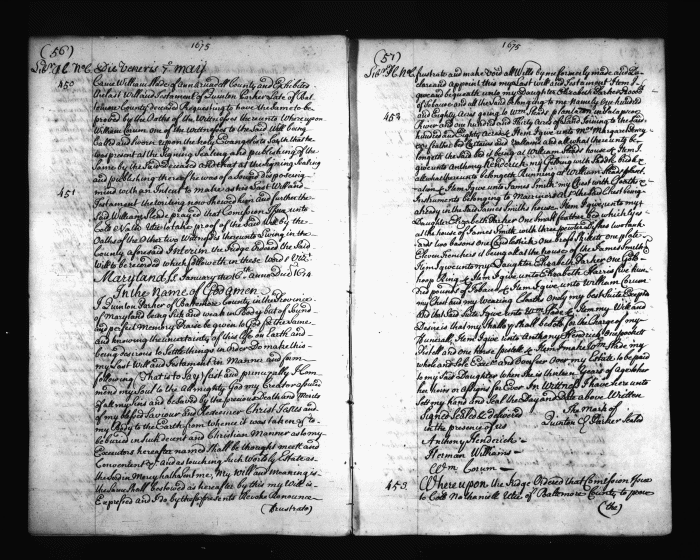 (56)
1675
Lib.r H. C. W. C. Die Veneris 7.o May
450 Came William Slade of annarundell County and Exhibited
the last Will and Testament of Quinton Parker Late of Bal
County deceased Requesting to have the same to be
proved by the Oaths of the Witnesses thereunto Whereupon
William Corum one of the Witnesses to the Said Will being
called and Sworn upon the holy Evangelists Saith that he
was present at the Signing Sealing and publishing of the
same by the Said Deceased and that as the Signing Sealing
and publishing thereof he was of a Sound disposeing
mind with an Intent to make as his Last Will and
451 Testament the writing now shewed him and further the
Said William Slade prayed that Comission Issue unto
Cole Nath.ll Utie to take proof of the Said Will by the
Oaths of the Other two Witnesses thereunto Living in the
County aforesaid Interim the Judge Ordered the Said
Will to be recorded which followeth in these Words Viz.t
Maryland Ss. January the 16.th anno Dni 1674
In the Name of God Amen
I Quinton Parker of Baltemore County in the Province
of Maryland being Sick and weak in Body but of Sound
and perfect Memory Praise be given to God for the same
and knowing the uncertainty of this life on Earth and
being desirous to Settle things in Order Do make this
my Last Will and Testament in Manner and form
following That is to Say first and principally I Com
mend my Soul to the Almighty God my Creator assured
of all my Sins and to be Saved by the precious Death and Merits
of my blessed Saviour and Redeemer Christ Jesus and
my Body to the Earth from whence it was taken of to
be buried in Such decent and Christian Manner as to my
Executors hereafter named Shall be thought meet and
Convenient & as touching Such Worldly Estate as
the Lord in Mercy hath Lent me, My Will and Meaning is
the same Shall be bestowed as hereafter by this my Will is
Expressed and I do by these presents Revoke Renounce
(frustrate)
(57)
1675
Lib.r H. C. W. C. frustrate and make void all Wills by me formerly made and De
clare and Appoint this my Last Will and Testament Item I
give and bequeath unto my Daughter Elizabeth Parker Stock
of and all the Land belonging to me Namely One hundred
and Eighty Acres joyning to Wm. Slades plantation in Petapsico
452 River and One hundred and thirty Acres of Land Joining to the Said
hundred and Eighty acres & Item I give unto Mrs. Margaret
one feather bed Curtains and Valliens and all what there unto be
longeth the Said bed is being at William Slades house & Item I
give unto Anthony Hendrick my Gelding with Saddle bridle &
all what thereunto belongeth Running at William Slades
& Item I give unto James Smith my Chest with
Instruments belonging to Marriners all the Said Chest being
already in the Said James Smiths house Item I give unto my
Daughter Elizabeth Parker One Small feather bed which lyes
at the house of James Smith with three pewter dishes two
two basons one one brass Skillett one plate
Eleven Trenchers is being all at the house of the James Smith
Item I give unto my Daughter Elizabeth Parker One Gold
hoop Ring & Item I give unto Elizabeth Harris five hun
dred pounds of Tobacco & Item I give unto William Corum
my Chest and my Wearing Cloaths Only my best Suite Excepted
And this Said Suite I give unto Wm. Slade & Item my Will and
Desire is that my Shallop Shall be Sold for the Charges of my
funerall Item I give unto Anthony Hendrick One pocket
Pistoll and One Horse pistoll & Item I make Wm. Slade my
whole and Sole Exec.r and Overseer over my Estate to be paid
to my Said Daughter When She is thirteen Years of age to her
her Heirs or assignes for Ever In Witness I have here unto
Sett my hand and Seal the Day and Date above Written
Signed Sealed & delivered
in the presence of us
The Mark of
Quinton Q Parker Sealed
Anthony Hendrick
Herman Williams
Wm. Corum
453 Whereupon the Judge Ordered that Comission Issue
to Coll. Nathaniell Utie of Baltemore County to prove
(the)